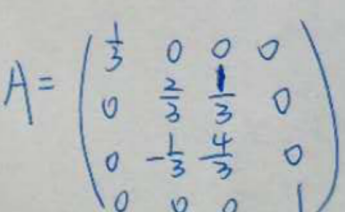 A = ( 1/3 0 0 0
0 2/3 1/3 0
0 -1/3 4/3 0
0 0 0 1 )